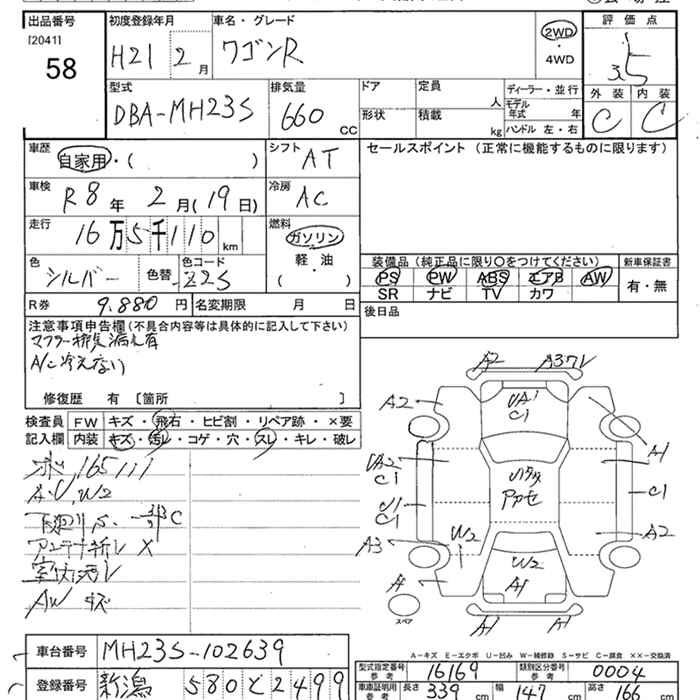 出品番号 初度登録年月 車名・グレード 2WD 評価点
[2041] H21 2月 ワゴンR ・ 3.5
58 4WD
型式 排気量 ドア 定員 人 ディーラー・並行 外装 内装
DBA-MH23S 660 CC 形状 積載 kg モデル年式 年 C C
ハンドル 左・右
車歴 自家用・( ) シフト AT セールスポイント (正常に機能するものに限ります)
車検 R8年 2月(19日) 冷房 AC
走行 16万5千110 km 燃料 ガソリン
軽・油
( )
色 シルバー 色替 色コード Z2S
装備品 (純正品に限り〇をつけてください) 新車保証書
PS PW ABS エアB AW 有・無
SR ナビ TV カワ
R券 9,880円 名変期限 月 日 後日品
注意事項申告欄 (不具合内容等は具体的に記入して下さい)
マフラー排気漏れ有
A/C冷えない
修復歴 有 [箇所 ]
検査員 FW キズ・飛石・ヒビ割・リペア跡・×要
記入欄 内装 キズ・汚レ・コゲ・穴・スレ・キレ・破レ
165111
A.U.W2
C
アンテナ折レ X
室内汚レ
AW キズ
A2 A3ワレ
A2 UA1 C1
A1
UA2 C1
C1
U1 C1
A3 W2 A2
W2
A A1
スペア
A1 A1
A-キズ E-エクボ U-凹み W-補修跡 S-サビ C-腐食 XX-交換済
車台番号 MH23S-102639
登録番号 新潟 580と2499
型式指定番号 参考 16169 類別区分番号 参考 0004
車庫証明用 参考 長さ 339 cm 幅 147 cm 高さ 166 cm